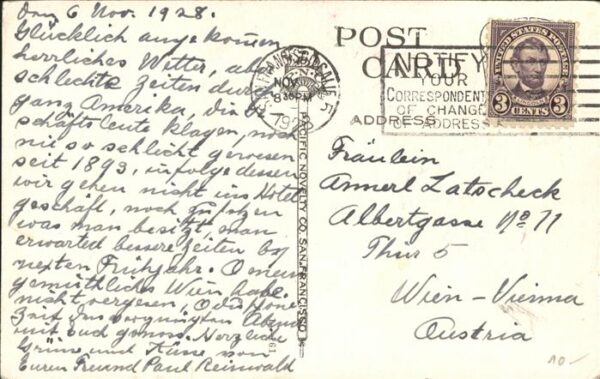 Den 6 Nov. 1928.
Glücklich angekomen
herrliches Wetter, aber
schlechte Zeiten durch
ganz Amerika, die Ge
schäftsleute klagen, noch
nie so schlecht gewesen
seit 1893, infolgedessen
wir gehen nicht ins Hotel
geschäft, noch
was man besitzt, man
erwarted bessere Zeiten by
nexten Frühjahr. O mein
gemüthliches Wien habe
nicht vergesen, O die schöne
Zeit des vergnügten Abens
mit euch genoss. Herzliche
Grüsse und Küsse von
Euren Freund Paul Reinwald
POST CARD
ADDRESS
SAN FRANCISCO, CALIF.
NOV
8 PM
1928
NOTIFY
YOUR
CORRESPONDENTS
OF CHANGE
OF ADDRESS
UNITED STATES POSTAGE
LINCOLN
3 CENTS 3
PACIFIC NOVELTY CO. SAN FRANCISCO
61
Fräulein
Annerl Latscheck
Albertgasse No 11
Thur 5
Wien - Vienna
Austria
10-